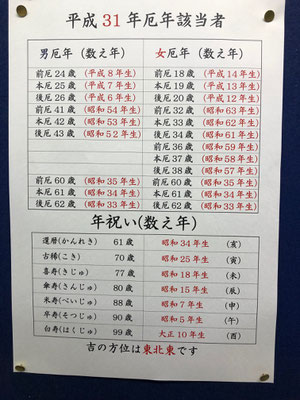 平成31年厄年該当者
男厄年（数え年） 女厄年（数え年）
前厄24歳（平成8年生） 前厄18歳（平成14年生）
本厄25歳（平成7年生） 本厄19歳（平成13年生）
後厄26歳（平成6年生） 後厄20歳（平成12年生）
前厄41歳（昭和54年生） 前厄32歳（昭和63年生）
本厄42歳（昭和53年生） 本厄33歳（昭和62年生）
後厄43歳（昭和52年生） 後厄34歳（昭和61年生）
前厄36歳（昭和59年生）
本厄37歳（昭和58年生）
後厄38歳（昭和57年生）
前厄60歳（昭和35年生） 前厄60歳（昭和35年生）
本厄61歳（昭和34年生） 本厄61歳（昭和34年生）
後厄62歳（昭和33年生） 後厄62歳（昭和33年生）
年祝い(数え年)
還暦(かんれき) 61歳 昭和34年生 （亥）
古稀(こき) 70歳 昭和25年生 （寅）
喜寿(きじゅ) 77歳 昭和18年生 （未）
傘寿(さんじゅ) 80歳 昭和15年生 （辰）
米寿(べいじゅ) 88歳 昭和7年生 （申）
卒寿(そつじゅ) 90歳 昭和5年生 （午）
白寿(はくじゅ) 99歳 大正10年生 （酉）
吉の方位は東北東です